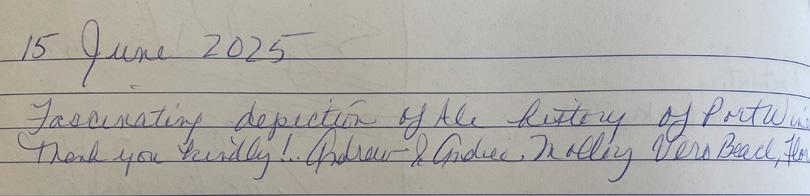 15 June 2025
Fascinating depiction of the history of Port Win
Thank you kindly!.. Andrew & Andrea Molloy Vero Beach, Flor